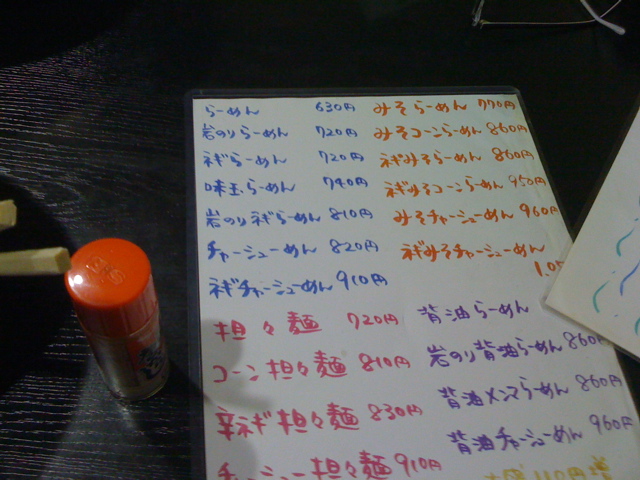 らーめん 630円
岩のりらーめん 720円
ネギらーめん 720円
味玉らーめん 740円
岩のりネギらーめん 810円
チャーシューめん 820円
ネギチャーシューめん 910円
みそらーめん 770円
みそコーンらーめん 860円
ネギみそらーめん 860円
ネギみそコーンらーめん 950円
みそチャーシューめん 960円
ネギみそチャーシューめん
1.05
担々麺 720円
コーン担々麺 810円
辛ネギ担々麺 830円
チャーシュー担々麺 910円
背油らーめん
岩のり背油らーめん 860円
背油メンマらーめん 860円
背油チャーシューめん 960円
110円増